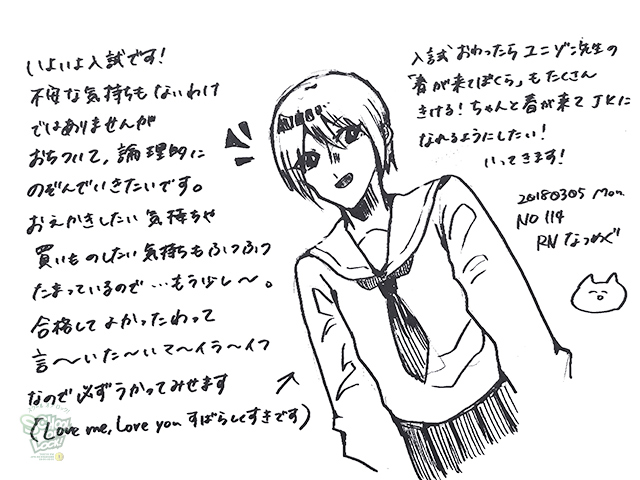 いよいよ入試です!
不安な気持ちもないわけ
ではありませんが
おちついて,論理的に
のぞんでいきたいです。
おえかきしたい気持ちや
買いものしたい気持ちもふつふつ
たまっているので…もう少し〜。
合格してよかったわって
言〜いた〜いマ〜イラ〜イフ
なので必ずうかってみせます
(Love me, Love you すばらしくすきです)
入試おわったらユニゾン先生の
「春が来てぼくら」もたくさん
きける!ちゃんと春が来てJKに
なれるようにしたい!
いってきます!
20180305 Mon.
NO 114
RN なつめぐ
SCHOOL OF LOCK!